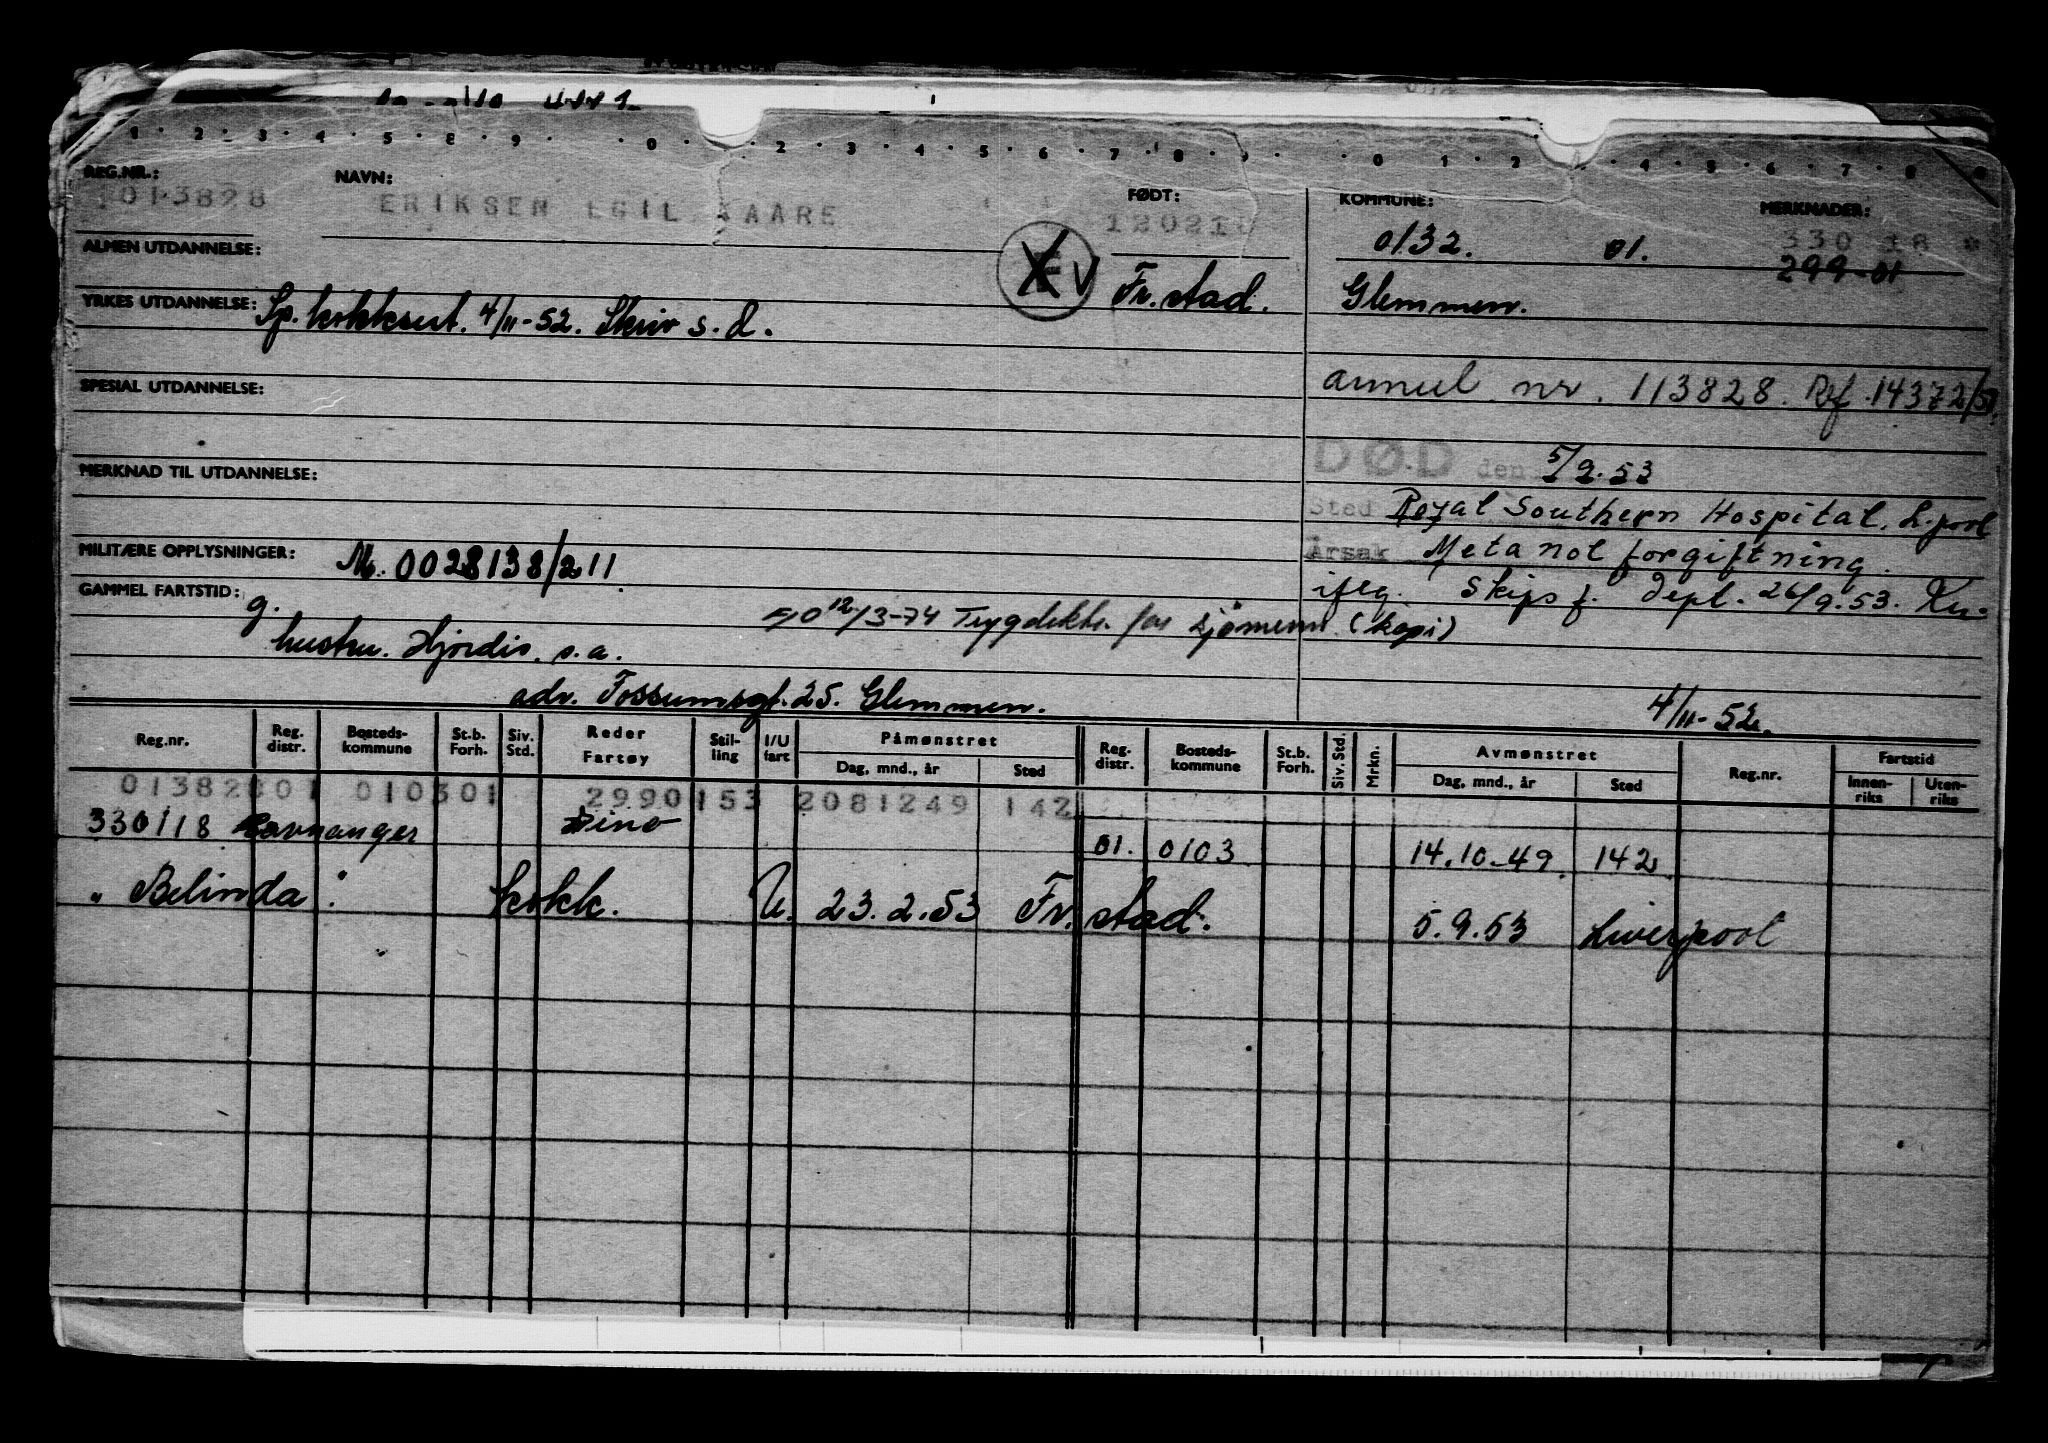 1 · 2 · 3 · 4 · 5 · 6 · 9 · 0 · 2 · 3 · 4 · 5 · 6 · 7 · 8 · 9 · 0 1 · 2 · 4 · 5 · 6 · 7 · 8
REG.NR.: NAVN: FØDT: KOMMUNE: MERKNADER:
1013828 ERIKSEN EGIL KAARE 120210 0132. 01. 330 18 *
299-01
ALMEN UTDANNELSE: Fr.stad. Glemmen.
YRKES UTDANNELSE: Sp. kokksert. 4/11-52. Skriv s.d.
SPESIAL UTDANNELSE: annul. nr. 113828. Ref. 14372/51
DØD den 5/9.53
MERKNAD TIL UTDANNELSE:
Sted Royal Southern Hospital. L.pool
MILITÆRE OPPLYSNINGER: M. 0028138/211 Årsak Metanol forgiftning.
GAMMEL FARTSTID: g. iflg. Skipsf. Dept. 26/9.53.
12/3-74 Trygdektr. for sjømenn. (kopi)
hustru. Hjordis. s.a.
adr. Fossumsgt. 25. Glemmen. 4/11-52.
Reg.nr. Reg. distr. Bosteds-kommune St.b. Forh. Siv. Std. Reder Fartøy Stil-ling I/U fart Påmønstret Dag, mnd., år Sted Reg. distr. Bosteds-kommune St.b. Forh. Siv. Std. Mrkn. Avmønstret Dag, mnd., år Sted Reg.nr. Fartstid Innen-riks Uten-riks
01382801 010301 2990153 2081249 142
330118 Ravnanger Dino 01. 0103 14.10-49. 142
" Belinda. " kokk. U. 23.2.53 Fr.stad. 5.9.53 Liverpool